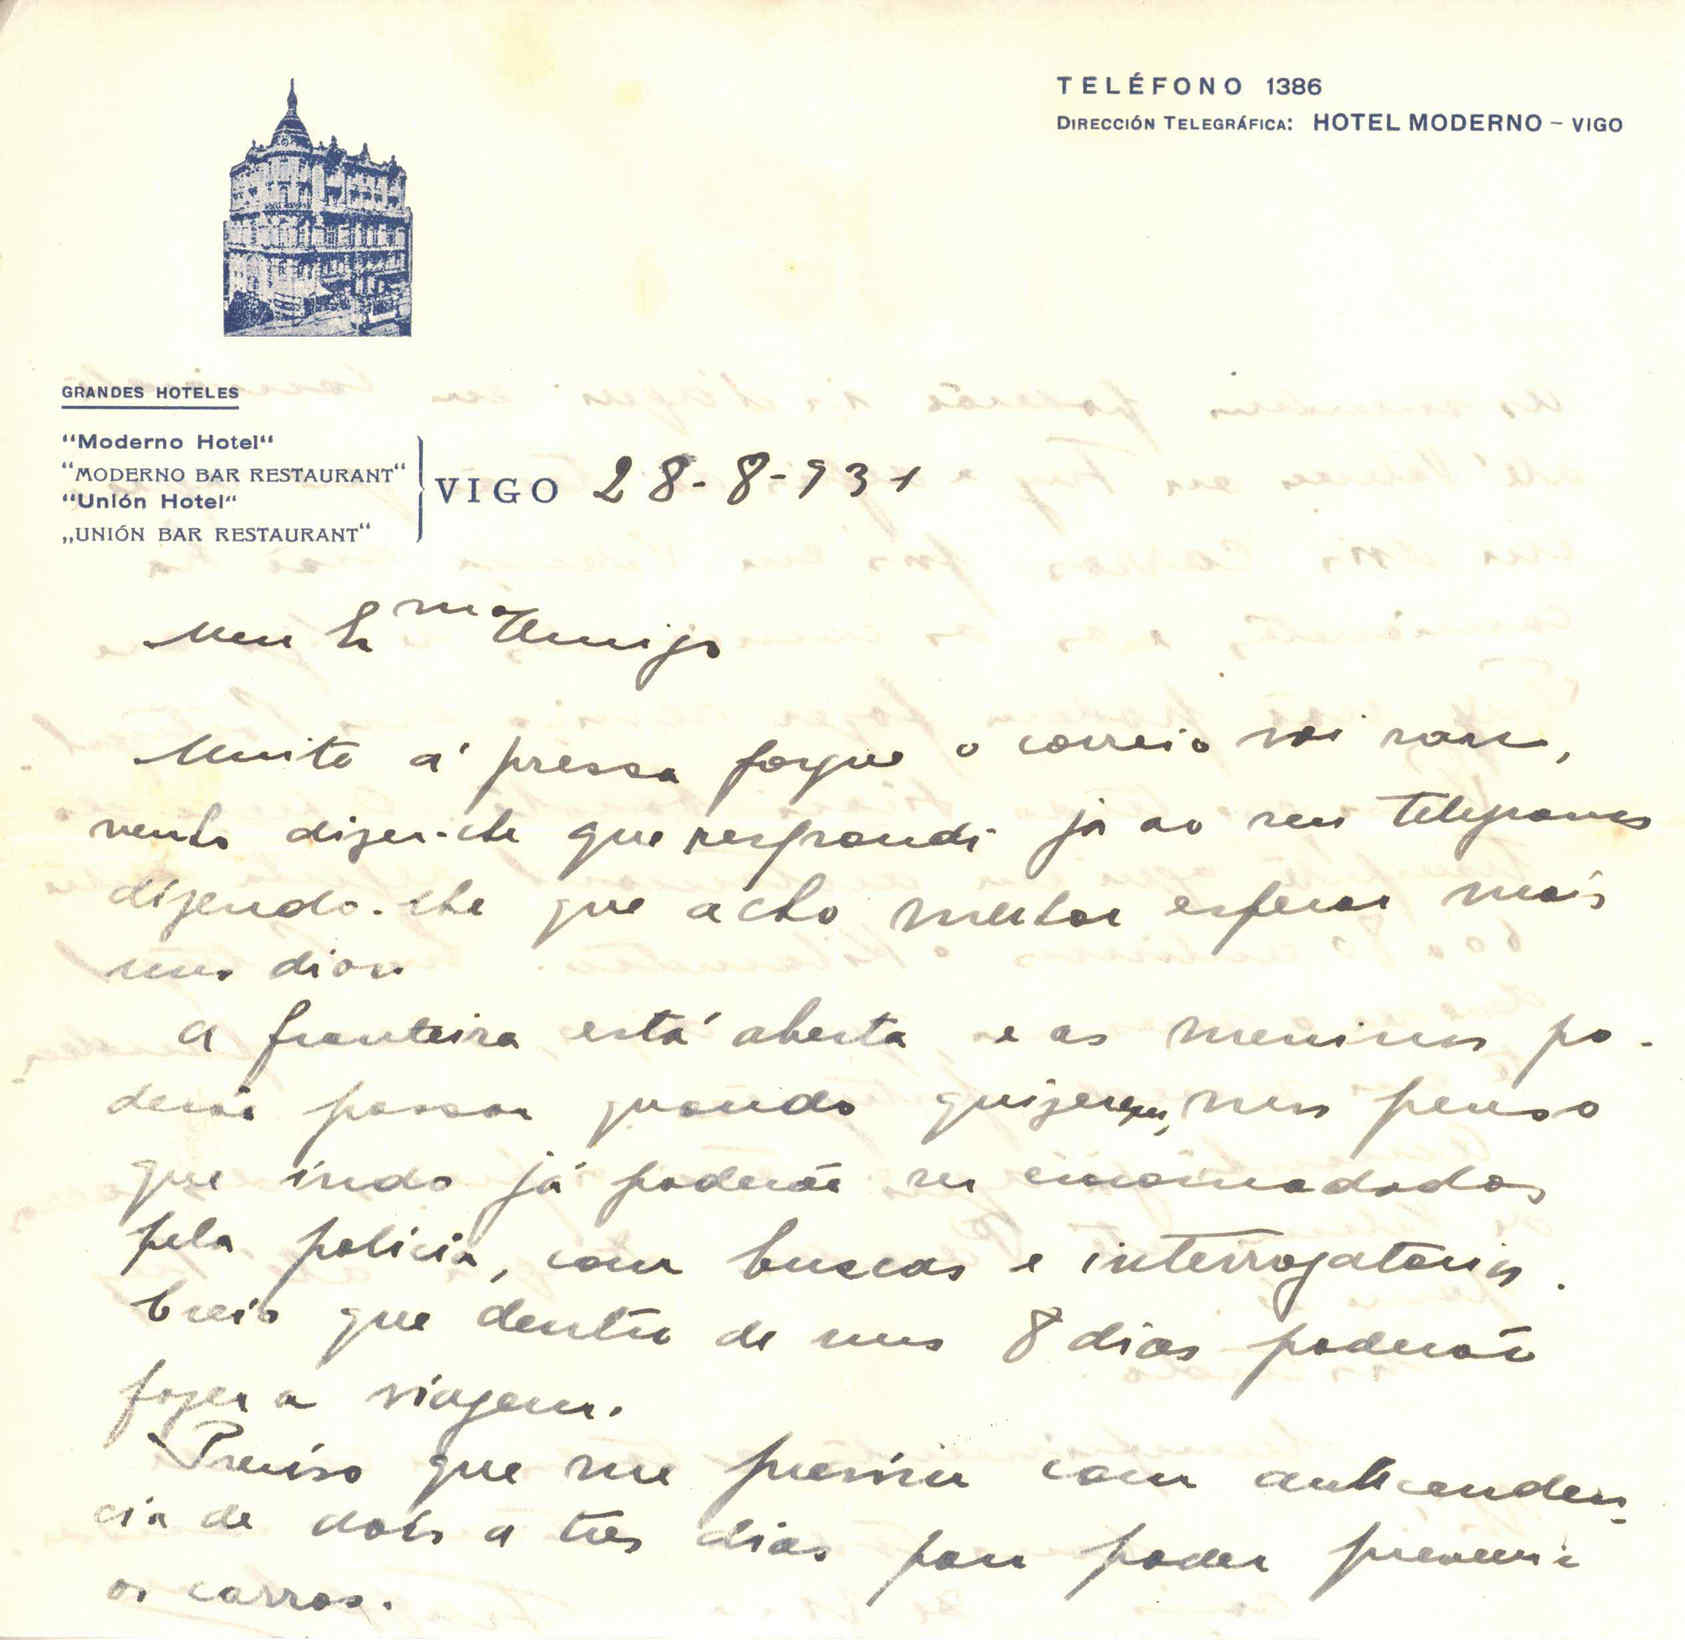 TELÉFONO 1386
DIRECCIÓN TELEGRÁFICA: HOTEL MODERNO - VIGO
GRANDES HOTELES
"Moderno Hotel"
"MODERNO BAR RESTAURANT"
"Unión Hotel"
„UNIÓN BAR RESTAURANT"
VIGO 28-8-931
Meu Exmo Amigo
Muito á pressa porque o correio vai sair,
venho dizer-lhe que respondi já ao seu telegrama
dizendo-lhe que acho melhor esperar mais
uns dias.
A fronteira está aberta e os meninos po-
derão passar quando quizerem, mas penso
que indo já poderão ser incomodados
pela policia, com buscas e interrogatorios.
Creio que dentro de uns 8 dias poderão
fazer a viagem.
Preciso que me previna com antecenden-
cia de dois a tres dias para poder prevenir
os carros.